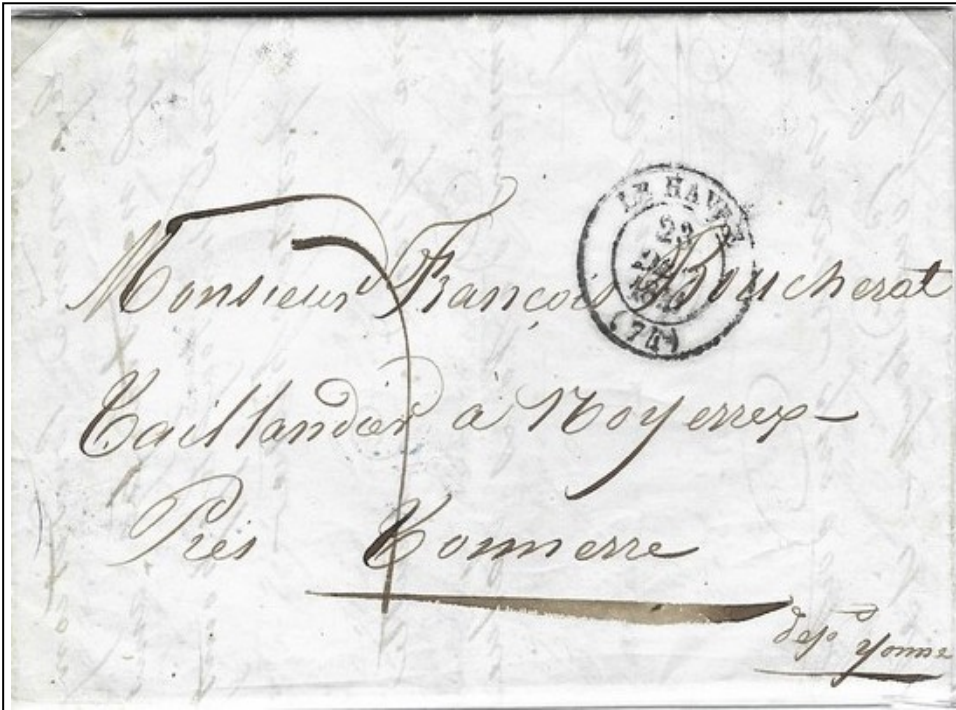 LE HAVRE
23
(74)
Monsieur François Boucherat
Taillandier à Noyers
Près Tonnerre
dept Yonne